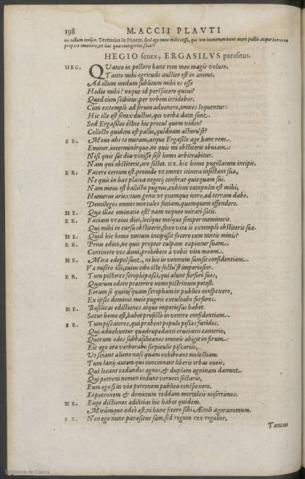 198 M. ACCII PLAVTI
HEGIO senex, ERGASILVS parasitus.
HEG. Quanto in pectore hanc rem meo magis voluto,
Tanto mihi ægritudo auctior est in animo.
Ad illum modum sublitum mihi os esse
Hodie mihi? neque id perspicere quivi?
Quod cùm scibitur, per vrbem irridebor.
Cùm extemplò ad forum aduenero, omnes loquentur:
Hic ille est senex doctus, qui verba data sunt.
Sed Ergasilus éstne hic procul quem video?
Collecto quidem est pallio, quidnam acturu'st?
ER. Moue abs te moram, atque Ergasile age hanc rem.
Eminor, interminórque, ne quis mi obstiterit obuiam:
Nisi quis sat diu vixisse sese homo arbitrabitur.
Nam qui obstiterit, ore sistet. HE. hic homo pugilatum incipit.
ER. Facere certum est, proinde vt omnes itinera insistant sua,
Ne quis in hac platea negotij conferat quicquam sui.
Nam meus est balista pugnus, cubitus catapulta est mihi,
Humerus aries: tum genu vt quemque icero, ad terram dabo.
Dentilegos omnes mortales faciam, quemquem offendero.
HE. Quæ illæc eminatio est? nam nequeo mirari satis.
ER. Faciam vt eius diei, locíque meíque semper meminerit.
Qui mihi in cursu obstiterit, faxo vitæ is extemplò obstiterit suæ
HE. Quid hic homo tantum incipissit facere cum tantis minis?
ER. Prius edico, ne quis propter culpam capiatur suam.
Continete vos domi, prohibete à vobis vim meam.
HE. Mira edepol sunt, ni hic in ventrem sumsit confidentiam.
Væ misero illi, cuius cibo iste factu'st imperiosior.
ER. Tum pistores scrophipasci, qui alunt furfuri sues,
Quarum odore præterire nemo pistrinum potest:
Eorum si quoiusquam scropham in publico conspexero,
Ex ipsis dominis meis pugnis exculcabo furfures.
HE. Basilicas edictiones atque imperiosas habet.
Satur homo est, habet profectò in ventre confidentiam.
ER. Tum piscatores, qui præbent populo pisces fœtidos.
Qui aduehuntur quadrupedanti crucianti canterio,
Quorum odos subbasilicanos omneis abigit in forum:
Eis ego ora verberabo sirpiculis piscariis,
Vt sciant alieno naso quam exhibeant molestiam.
Tum lanij autem qui concinnant liberis orbas oueis,
Qui locant cædundos agnos, & duplam agninam danunt.
Qui petroni nomen indunt verueci sectario,
Eum ego si in via petronem publica conspexero,
Et petronem & dominum reddam mortaleis miserrimos.
HE. Euge edictiones ædilitias hic habet quidem.
Mirúmque adeò est, ni hunc fecere sibi Ætoli agoranomum.
ER. Non ego nunc parasitus sum, sed regum rex regalior,
Tantus